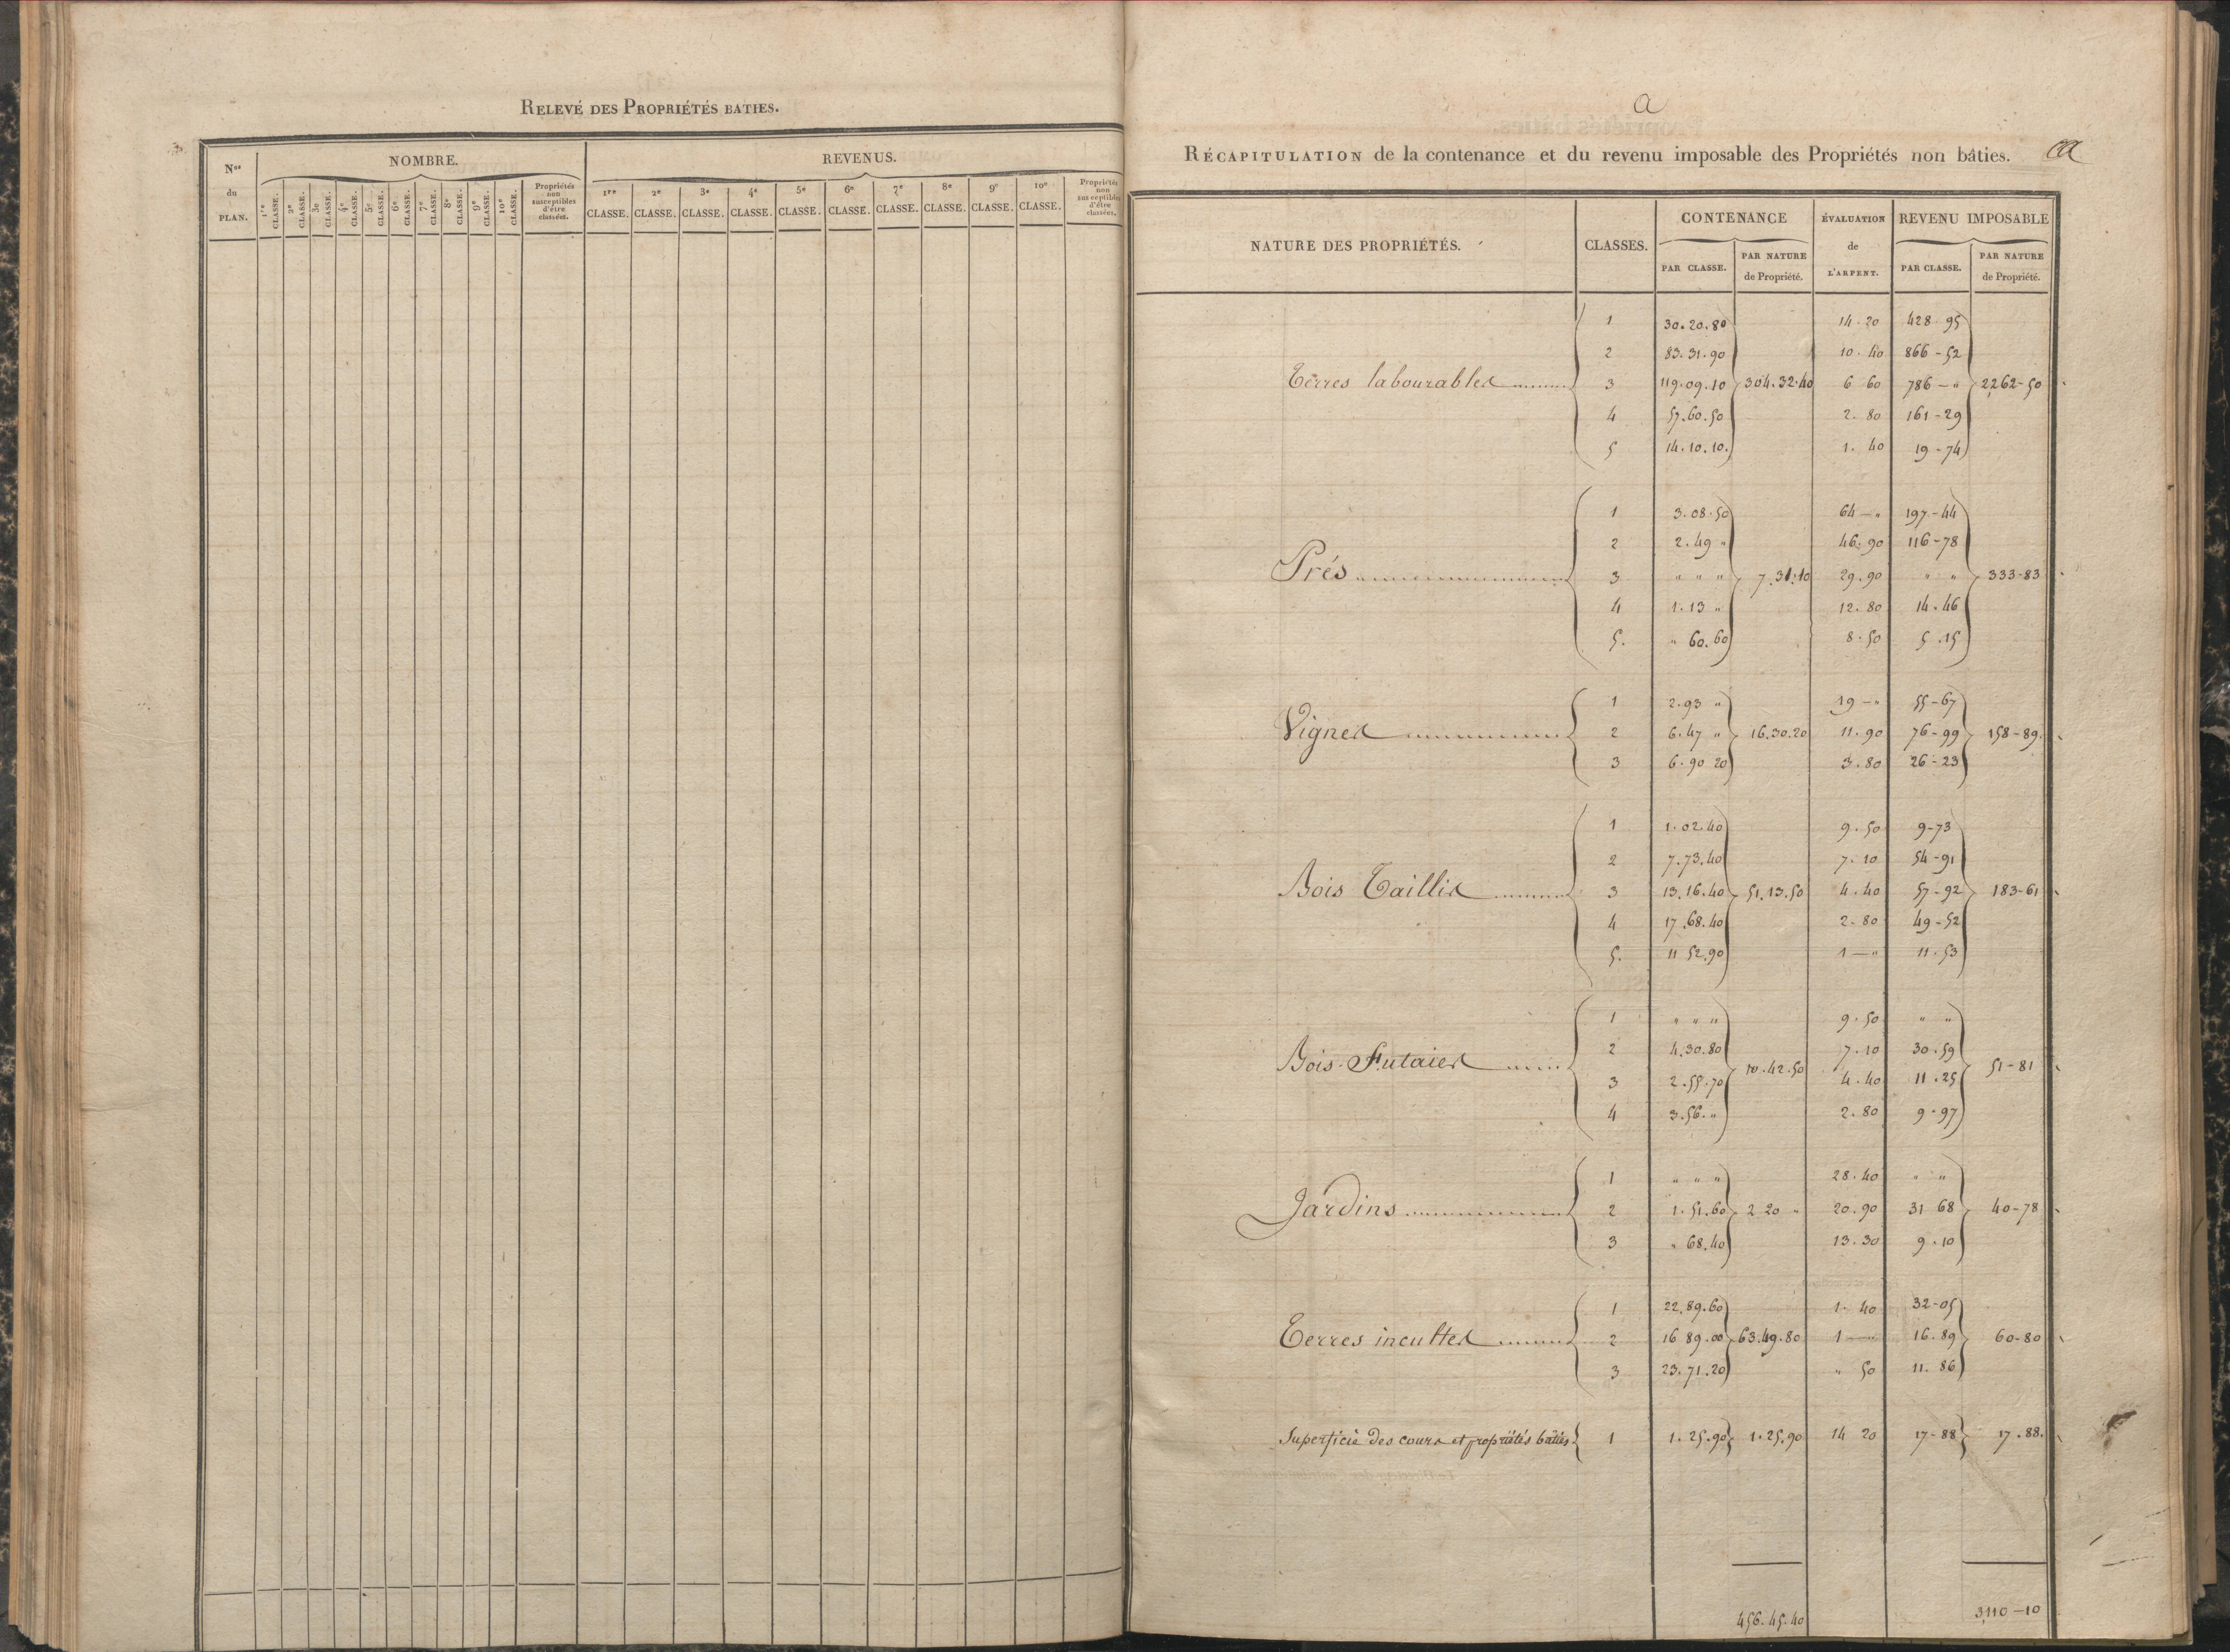 RELEVÉ DES PROPRIÉTÉS BATIES.
Nos du PLAN. NOMBRE. REVENUS.
1re CLASSE. 2e CLASSE. 3e CLASSE. 4e CLASSE. 5e CLASSE. 6e CLASSE. 7e CLASSE. 8e CLASSE. 9e CLASSE. 10e CLASSE. Propriétés non susceptibles d'être classées.
1re CLASSE. 2e CLASSE. 3e CLASSE. 4e CLASSE. 5e CLASSE. 6e CLASSE. 7e CLASSE. 8e CLASSE. 9e CLASSE. 10e CLASSE. Propriétés non susceptibles d'être classées.
a
RÉCAPITULATION de la contenance et du revenu imposable des Propriétés non bâties.
NATURE DES PROPRIÉTÉS. CLASSES. CONTENANCE ÉVALUATION de L'ARPENT. REVENU IMPOSABLE
PAR CLASSE. PAR NATURE de Propriété. PAR CLASSE. PAR NATURE de Propriété.
1 30.20.80 14.20 428.95
2 83.31.90 10.40 866-52
Terres labourables 3 119.09.10 304.32.40 6 60 786-" 2262-50
4 57.60.50 2.80 161-29
5 14.10.10. 1.40 19-74
1 3.08.50 64-" 197-44
2 2.49 " 46.90 116-78
Prés 3 " " " 7.31.10 29.90 " " 333-83
4 1.13 " 12.80 14.46
5. " 60.60 8.50 5.15
1 2.93 " 19-" 55-67
Vignes 2 6.47 " 16.30.20 11.90 76-99 158-89.
3 6.90 20 3.80 26-23
1 1.02.40 9.50 9-73
2 7.73.40 7.10 54-91
Bois Taillis 3 13.16.40 51.13.50 4.40 57-92 183-61
4 17.68.40 2.80 49-52
5. 11 52.90 1-" 11.53
1 " " " 9.50 " "
2 4.30.80 7.10 30.59
Bois Futaies 10.42.50 51-81
3 2.55.70 4.40 11.25
4 3.56." 2.80 9.97
1 " " " 28.40 " "
Jardins 2 1.51.60 2 20 " 20.90 31 68 40-78
3 " 68.40 13.30 9.10
1 22.89.60 1.40 32-05
Terres incultes 2 16 89.00 63.49.80 1-" 16.89 60-80
3 23.71.20 " 50 11.86
Superficie des cours et propriétés bâties 1 1.25.90 1.25.90 14 20 17-88 17.88.
456.45.40 3,110-10